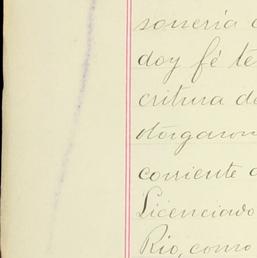 sonería
doy fé te
critura de
otorgaron
corriente
Licenciado
Rio, como